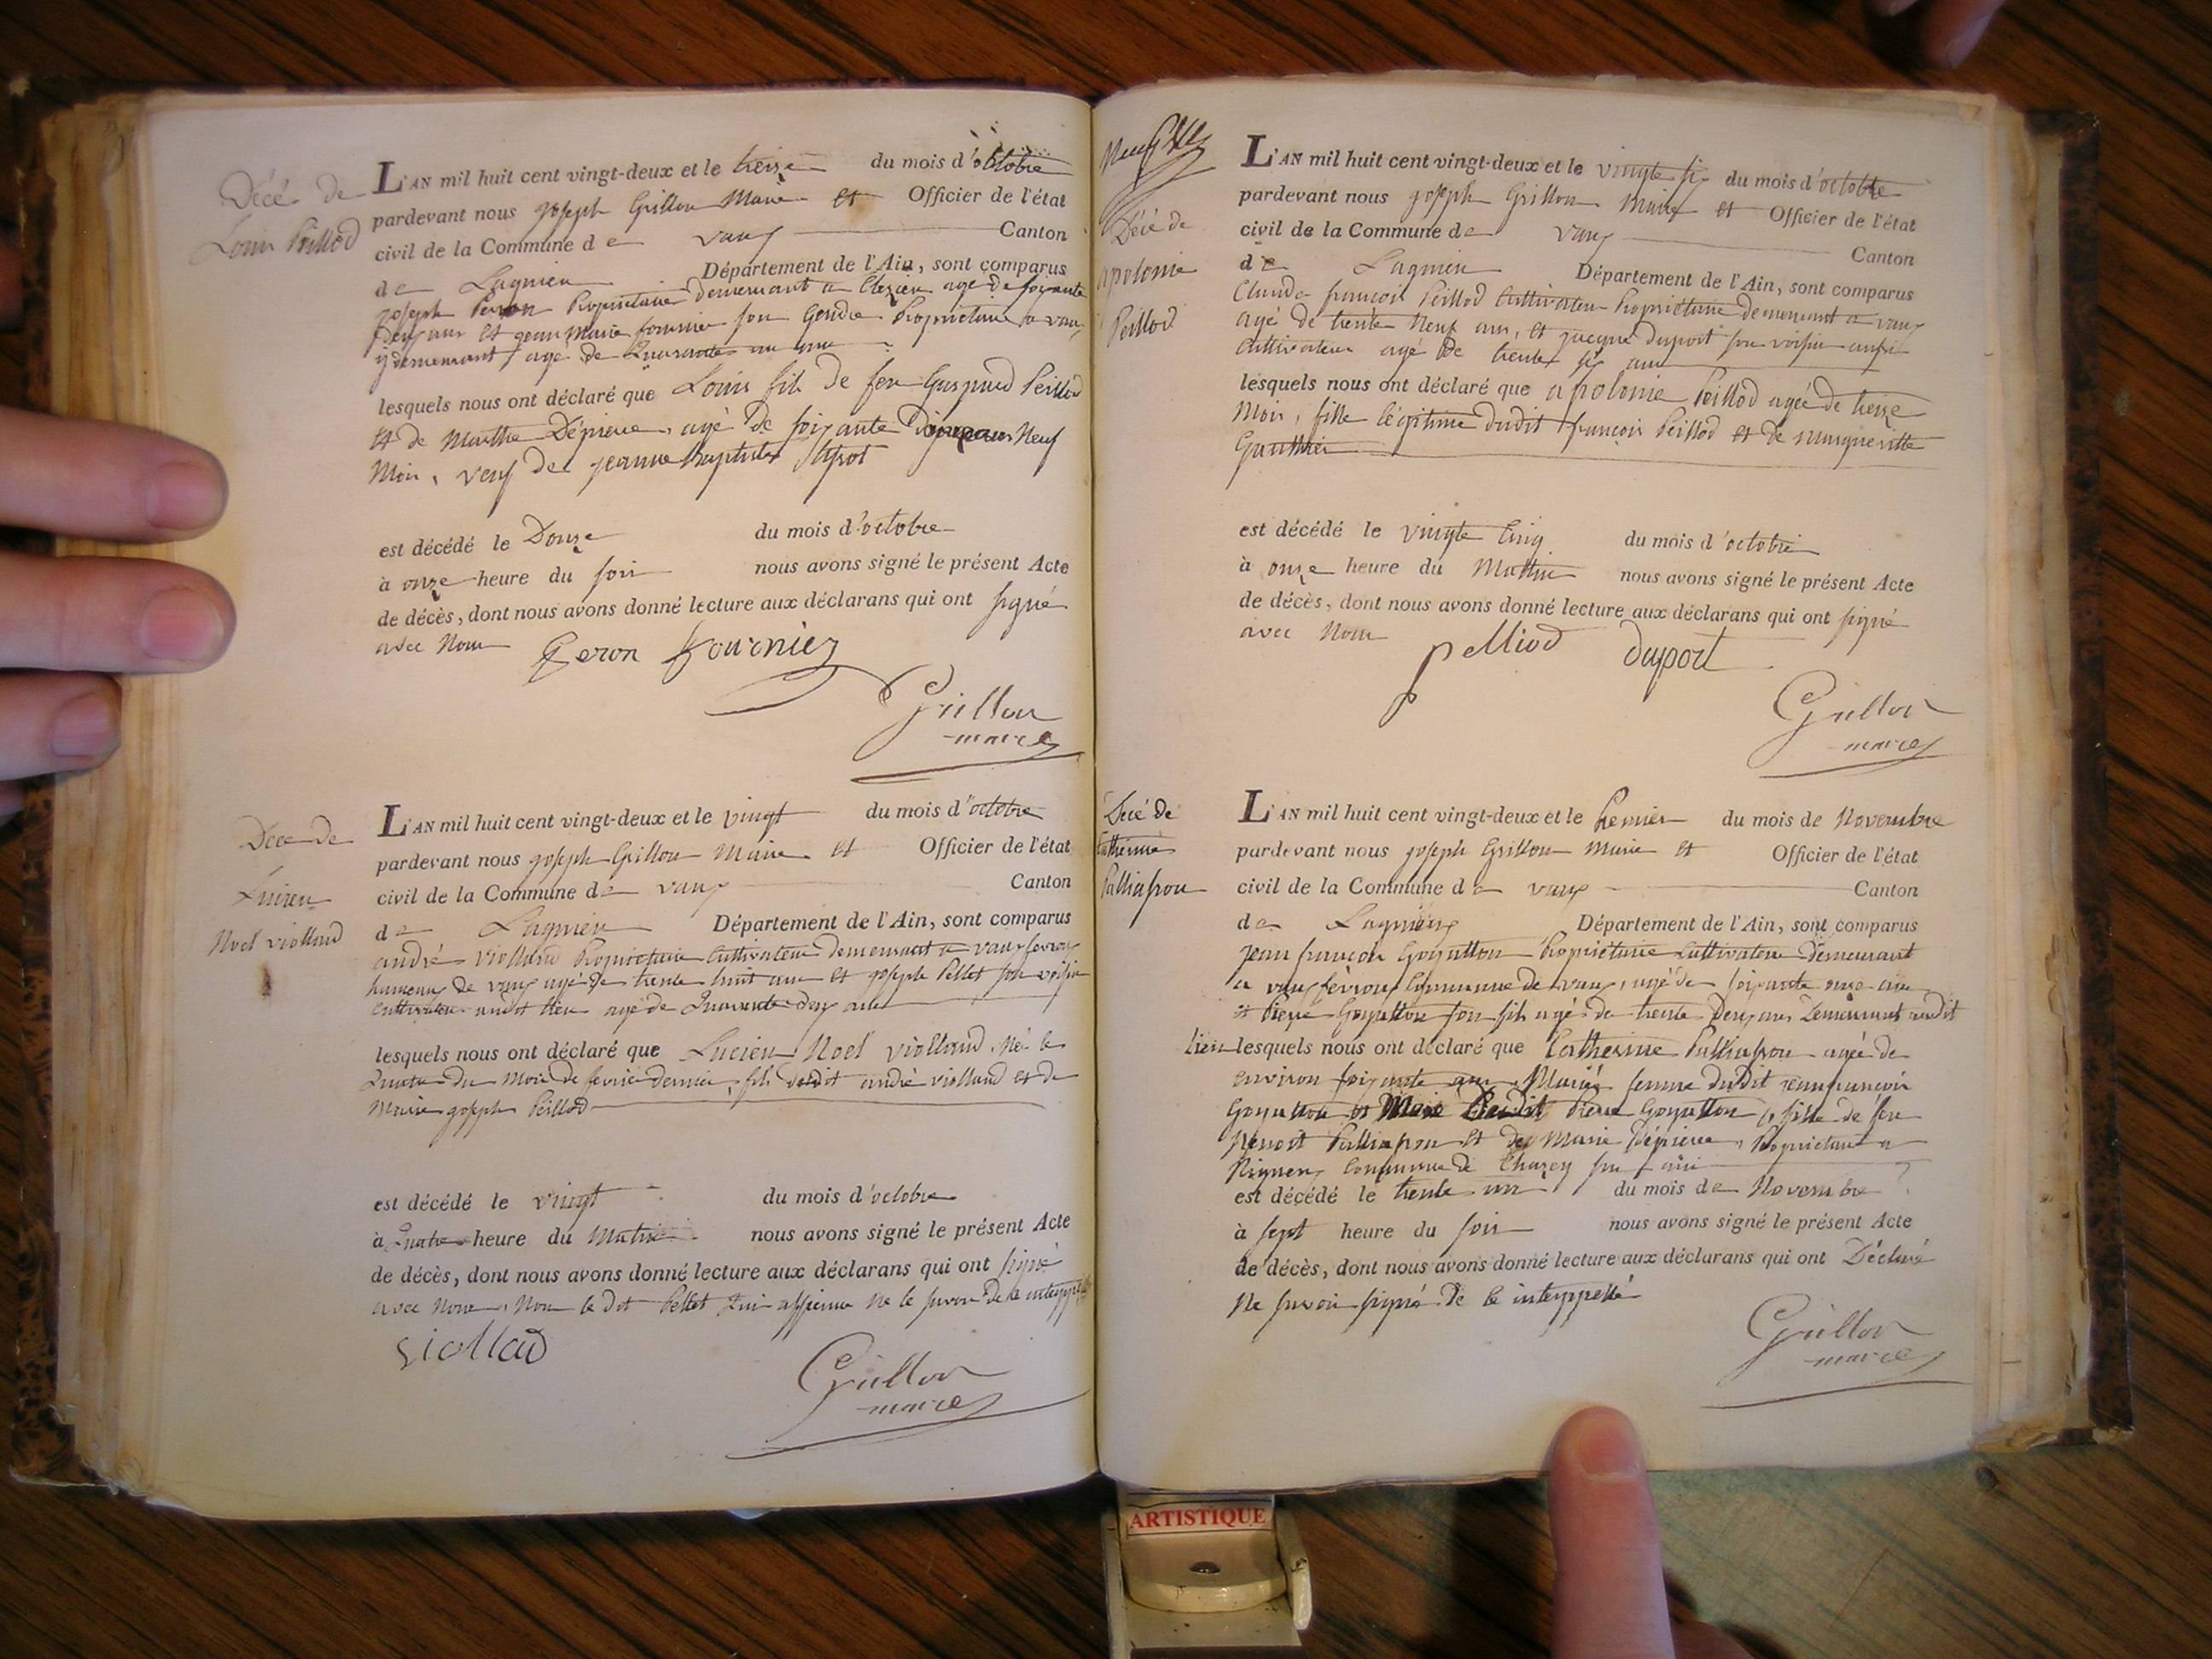 Décé de
Louis Peillod
L'AN mil huit cent vingt-deux et le treize du mois d'octobre
pardevant nous joseph Grillon Maire et Officier de l'état
civil de la Commune de vaux Canton
de Lagnieu Département de l'Ain, sont comparus
joseph Peron Propriétaire demeurant a agé de soixante
deux ans et jean Marie fournier son Gendre Propriétaire a vaux
y demeurant agé de Quarante un ans
lesquels nous ont déclaré que Louis fils de feu Gaspard Peillod
et de Marthe Dépierre, agé de soixante Neuf
Mois, veuf de jeanne Baptiste
est décédé le Douze du mois d'octobre
à onze heure du soir nous avons signé le présent Acte
de décès, dont nous avons donné lecture aux déclarans qui ont signé
avec Nous Peron fournier
Grillon
maire
Décé de
Lucien
Noel viollaud
L'AN mil huit cent vingt-deux et le vingt du mois d'octobre
pardevant nous joseph Grillon Maire et Officier de l'état
civil de la Commune de vaux Canton
de Lagnieu Département de l'Ain, sont comparus
andré viollaud Propriétaire Cultivateur demeurant a vaux fevroux
hameau de vaux agé de trente huit ans et joseph Pellet son voisin
cultivateur audit lieu agé de Quarante deux ans
lesquels nous ont déclaré que Lucien Noel viollaud, Né le
Quatre du Mois de fevrier dernier, fils dudit andré viollaud et de
Marie joseph Peillod
est décédé le vingt du mois d'octobre
à Quatre heure du Matin nous avons signé le présent Acte
de décès, dont nous avons donné lecture aux déclarans qui ont signé
avec Nous, Non le dit Pellet Qui affirme Ne le savoir de ce interppellé
viollad
Grillon
maire
Décé de
apolonie
Peillod
L'AN mil huit cent vingt-deux et le vingte six du mois d'octobre
pardevant nous joseph Grillon Maire et Officier de l'état
civil de la Commune de vaux Canton
de Lagnieu Département de l'Ain, sont comparus
Claude françois Peillod Cultivateur Propriétaire demeurant a vaux
agé de trente Neuf ans, et jacque duport son voisin aussi
Cultivateur agé de trente six ans
lesquels nous ont déclaré que apolonie Peillod agée de treize
Mois, fille légitime dudit françois Peillod et de Margueritte
Gauthier
est décédé le vingte Cinq du mois d'octobre
à onze heure du Mattin nous avons signé le présent Acte
de décès, dont nous avons donné lecture aux déclarans qui ont signé
avec Nous pelliod duport
Grillon
maire
Décé de
Catherine
Palliasson
L'AN mil huit cent vingt-deux et le Premier du mois de Novembre
pardevant nous joseph Grillon Maire et Officier de l'état
civil de la Commune de vaux Canton
de Lagnieu Département de l'Ain, sont comparus
jean françois Goyatton Propriétaire Cultivateur demeurant
a vaux févroux Commune de vaux, agé de soixante onze ans
et Pierre Goyatton son fils agé de trente Deux ans Demeurant audit
lieu lesquels nous ont déclaré que Catherine Palliasson agée de
environ soixante ans Mariée femme dudit jean françois
Goyatton et Dudit Pierre Goyatton, fille de feu
Benoit Palliasson et de Marie Dépierre, Propriétaire a
Rignieux Commune de Chazey sur ain
est décédé le trente un du mois de Novembre ?
à sept heure du soir nous avons signé le présent Acte
de décès, dont nous avons donné lecture aux déclarans qui ont Déclaré
Ne savoir signé De ce interppellé
Grillon
maire
ARTISTIQUE